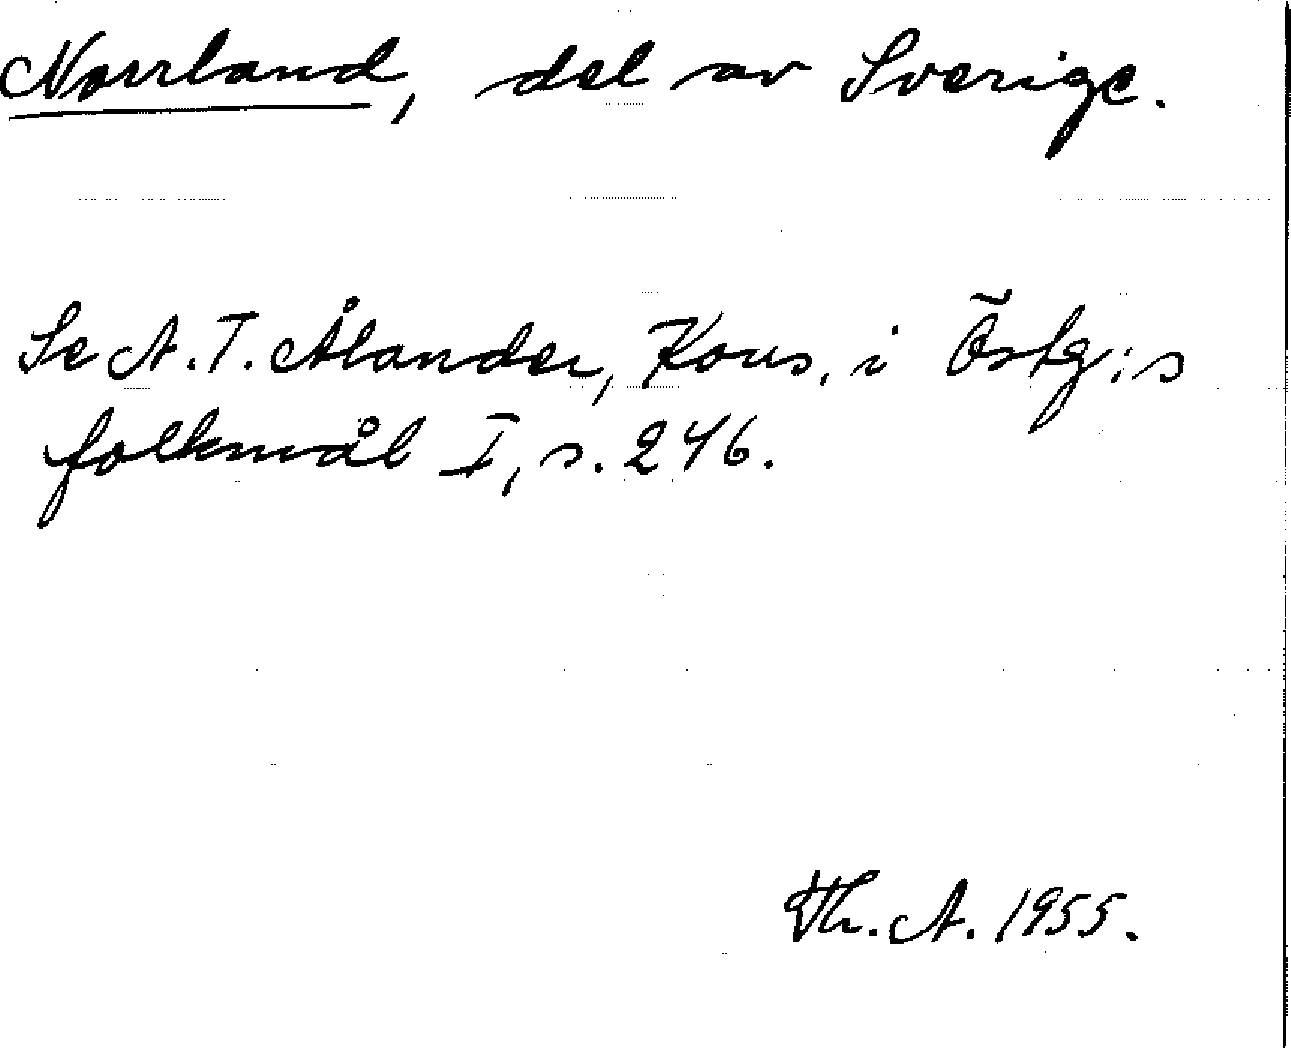 Norrland, del av Sverige.
Se A. T. Ålander, Kons. i Östg:s
folkmål I, s. 246.
Th. A. 1955.